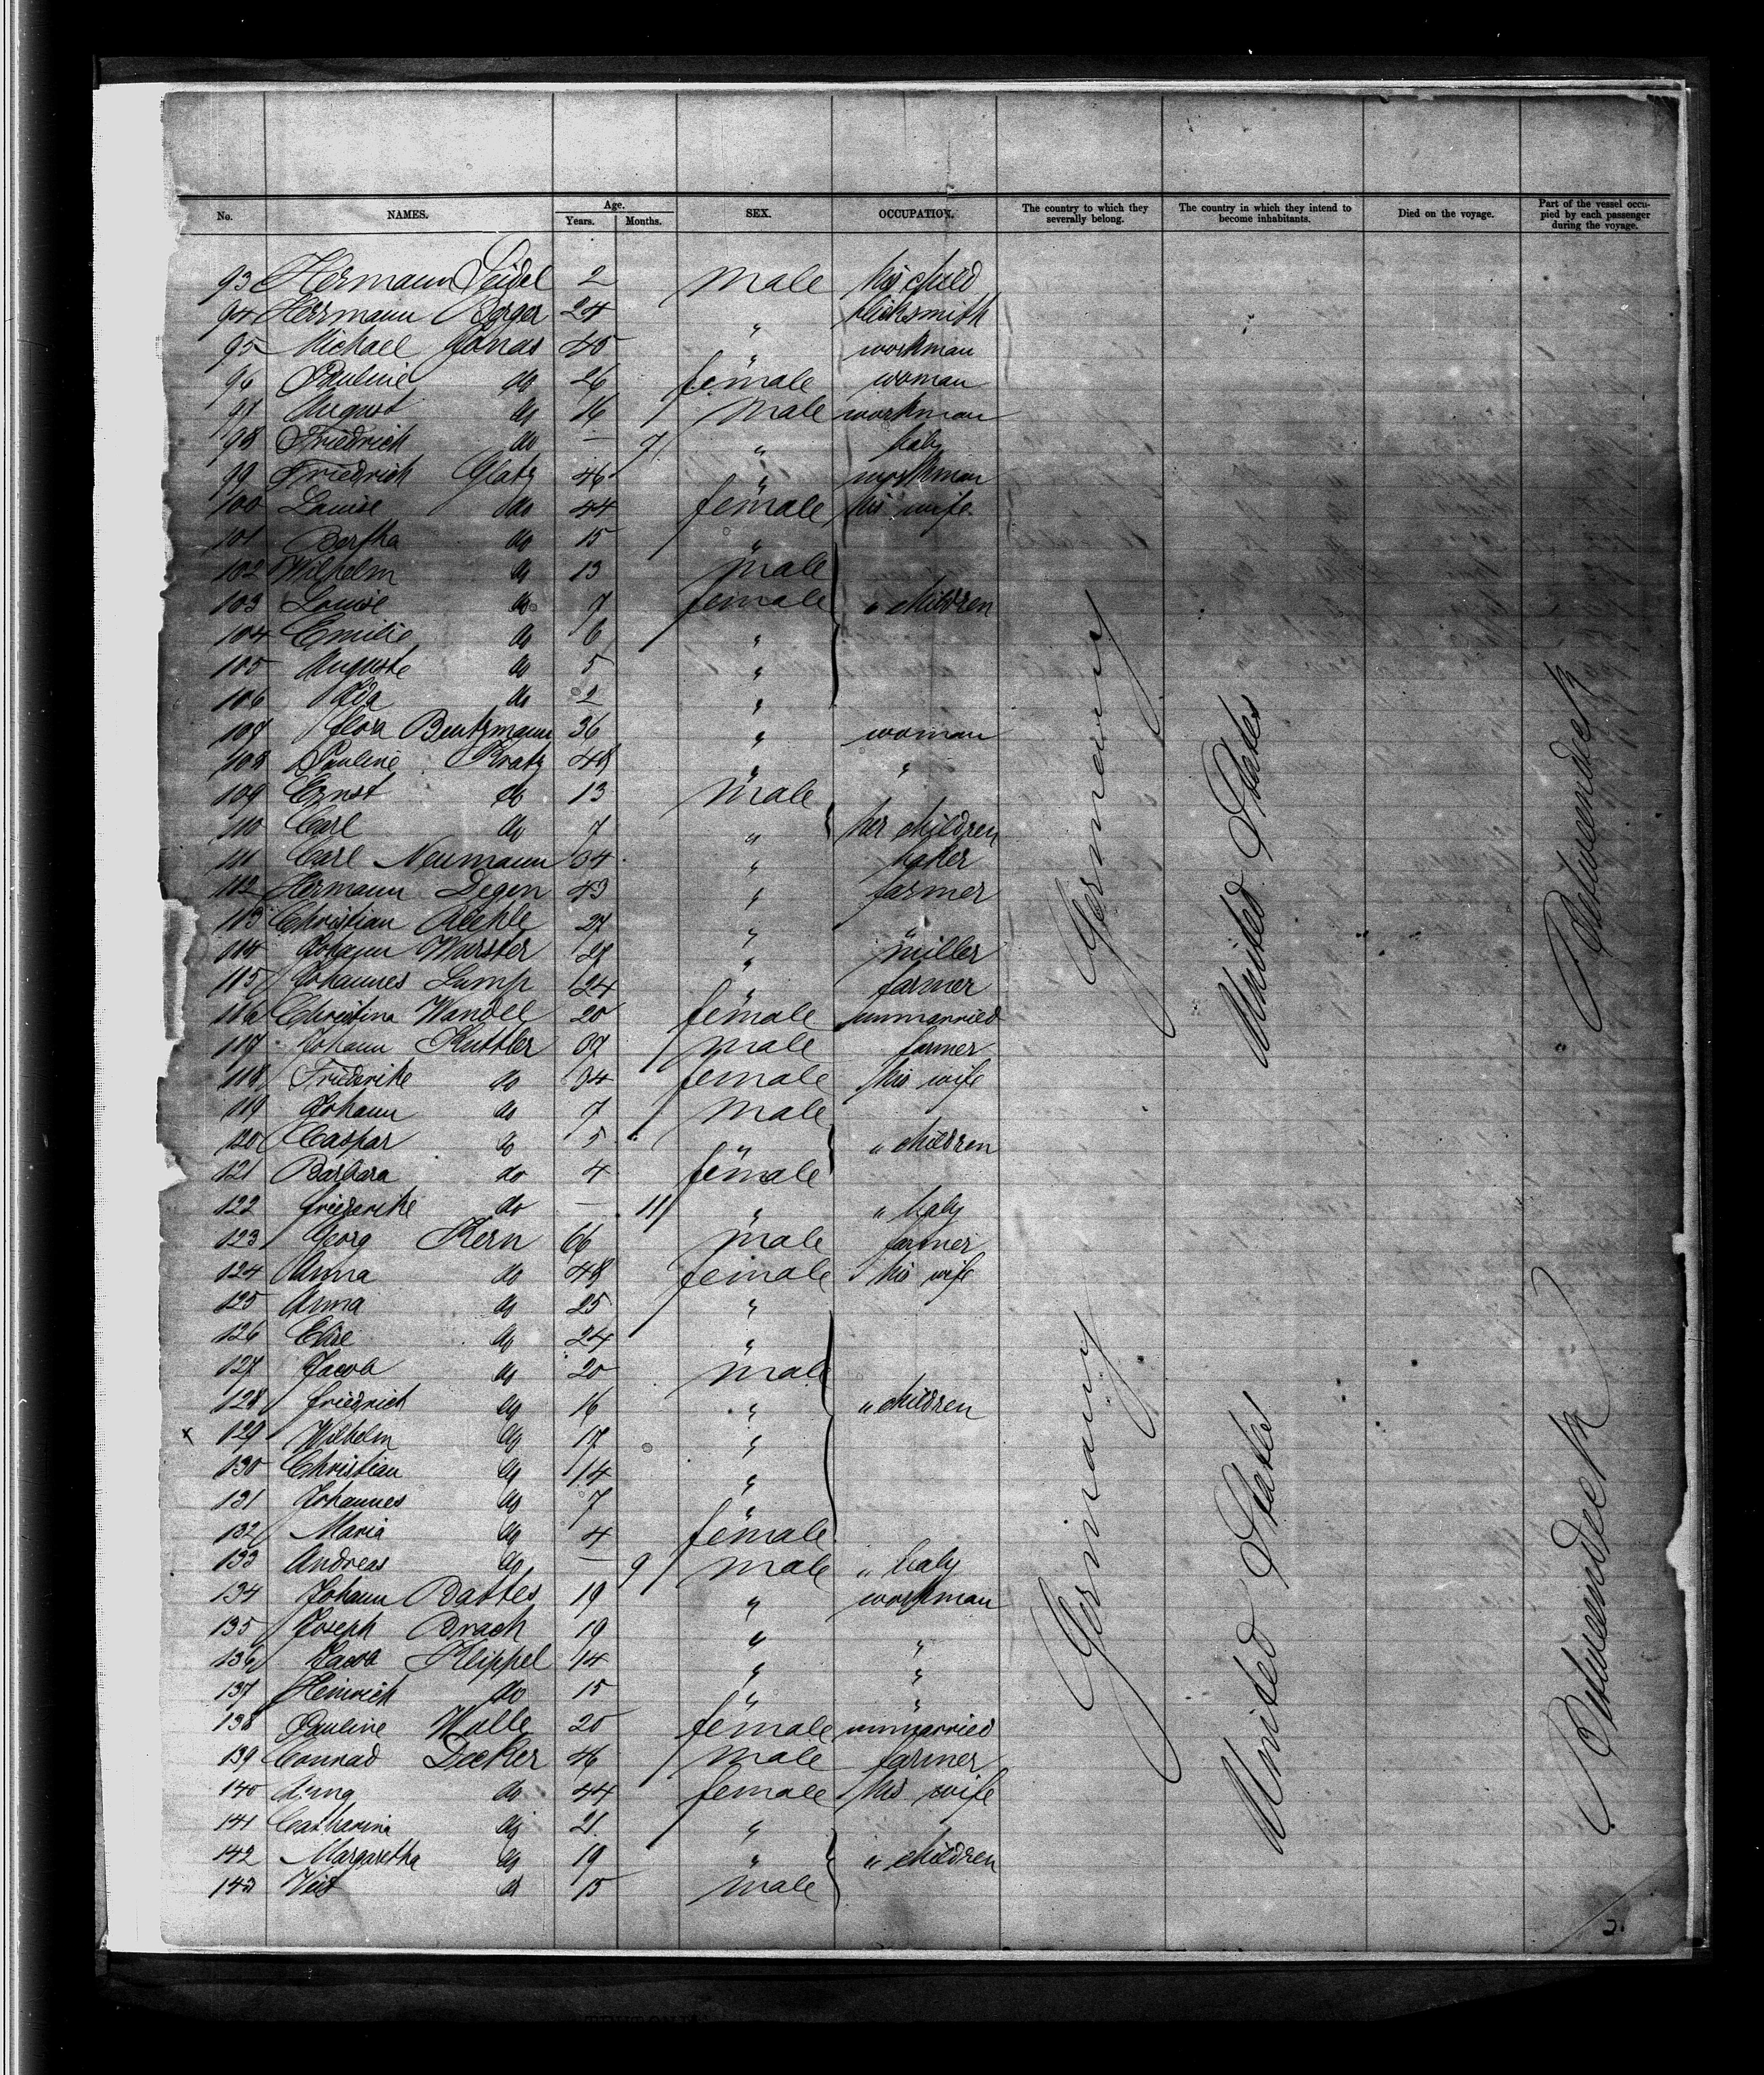 No. NAMES. Age. Years. Months. SEX. OCCUPATION. The country to which they severally belong. The country in which they intend to become inhabitants. Died on the voyage. Part of the vessel occupied by each passenger during the voyage.
93 Hermann Seidel 2 male his child
94 Herrmann Berger 24 " blicksmith
95 Michael Jonas 45 " workman
96 Pauline do 26 female woman
97 August do 16 male workman
98 Friedrich do — 7 " baby
99 Friedrich Glatz 46 " workman
100 Louise do 44 female his wife
101 Bertha do 15 "
102 Wilhelm do 13 male
103 Louise do 7 female " children
104 Emilie do 6 "
105 Auguste do 5 "
106 Ida do 2 "
107 Flora Bentzmann 36 " woman
108 Pauline Kratz 48 " "
109 Ernst do 13 male
110 Carl do 7 " her children
111 Carl Neumann 34 " baker
112 Hermann Degen 43 " farmer
113 Christian 27 " "
114 Johann Wurster 27 " miller
115 Johannes Lump 24 " farmer
116 Christina Wandel 20 female unmarried
117 Johann Kuttler 37 male farmer
118 Friederike do 34 female his wife
119 Johann do 7 male
120 Caspar do 5 " " children
121 Barbara do 4 female
122 Friederike do — 11 " " baby
123 Georg Kern 66 male farmer
124 Anna do 48 female his wife
125 Anna do 25 "
126 Elise do 24 "
127 Jacob do 20 male
128 Friedrich do 16 " " children
x 129 Wilhelm do 17 "
130 Christian do 14 "
131 Johannes do 7 "
132 Maria do 4 female
133 Andreas do — 9 male " baby
134 Johann Battes 19 " workman
135 Joseph Brach 19 " "
136 Jacob Klippel 14 " "
137 Heinrich do 15 " "
138 Pauline Wolle 20 female unmarried
139 Conrad Decker 46 male farmer
140 Anna do 44 female his wife
141 Catharina do 21 "
142 Margaretha do 19 " " children
143 Veit do 15 male
Germany
United States
Betweendeck
Germany
United States
Betweendeck